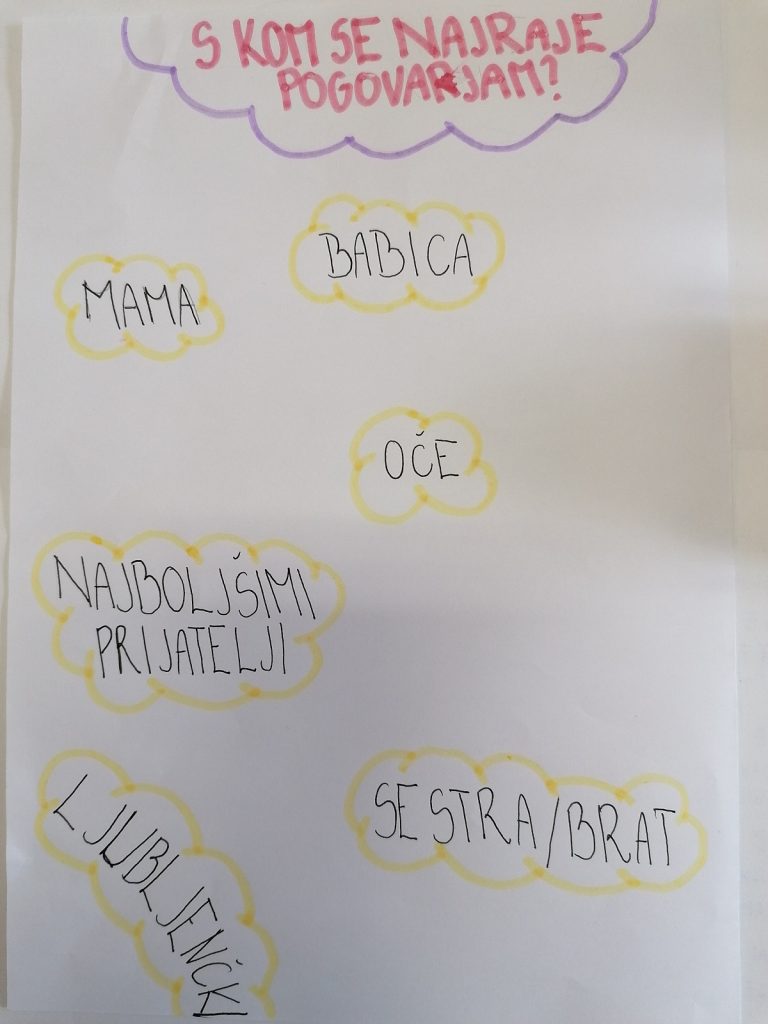 S KOM SE NAJRAJE
POGOVARJAM?
BABICA
MAMA
OČE
NAJBOLJŠIMI
PRIJATELJI
SESTRA/BRAT
LJUBLJENČK